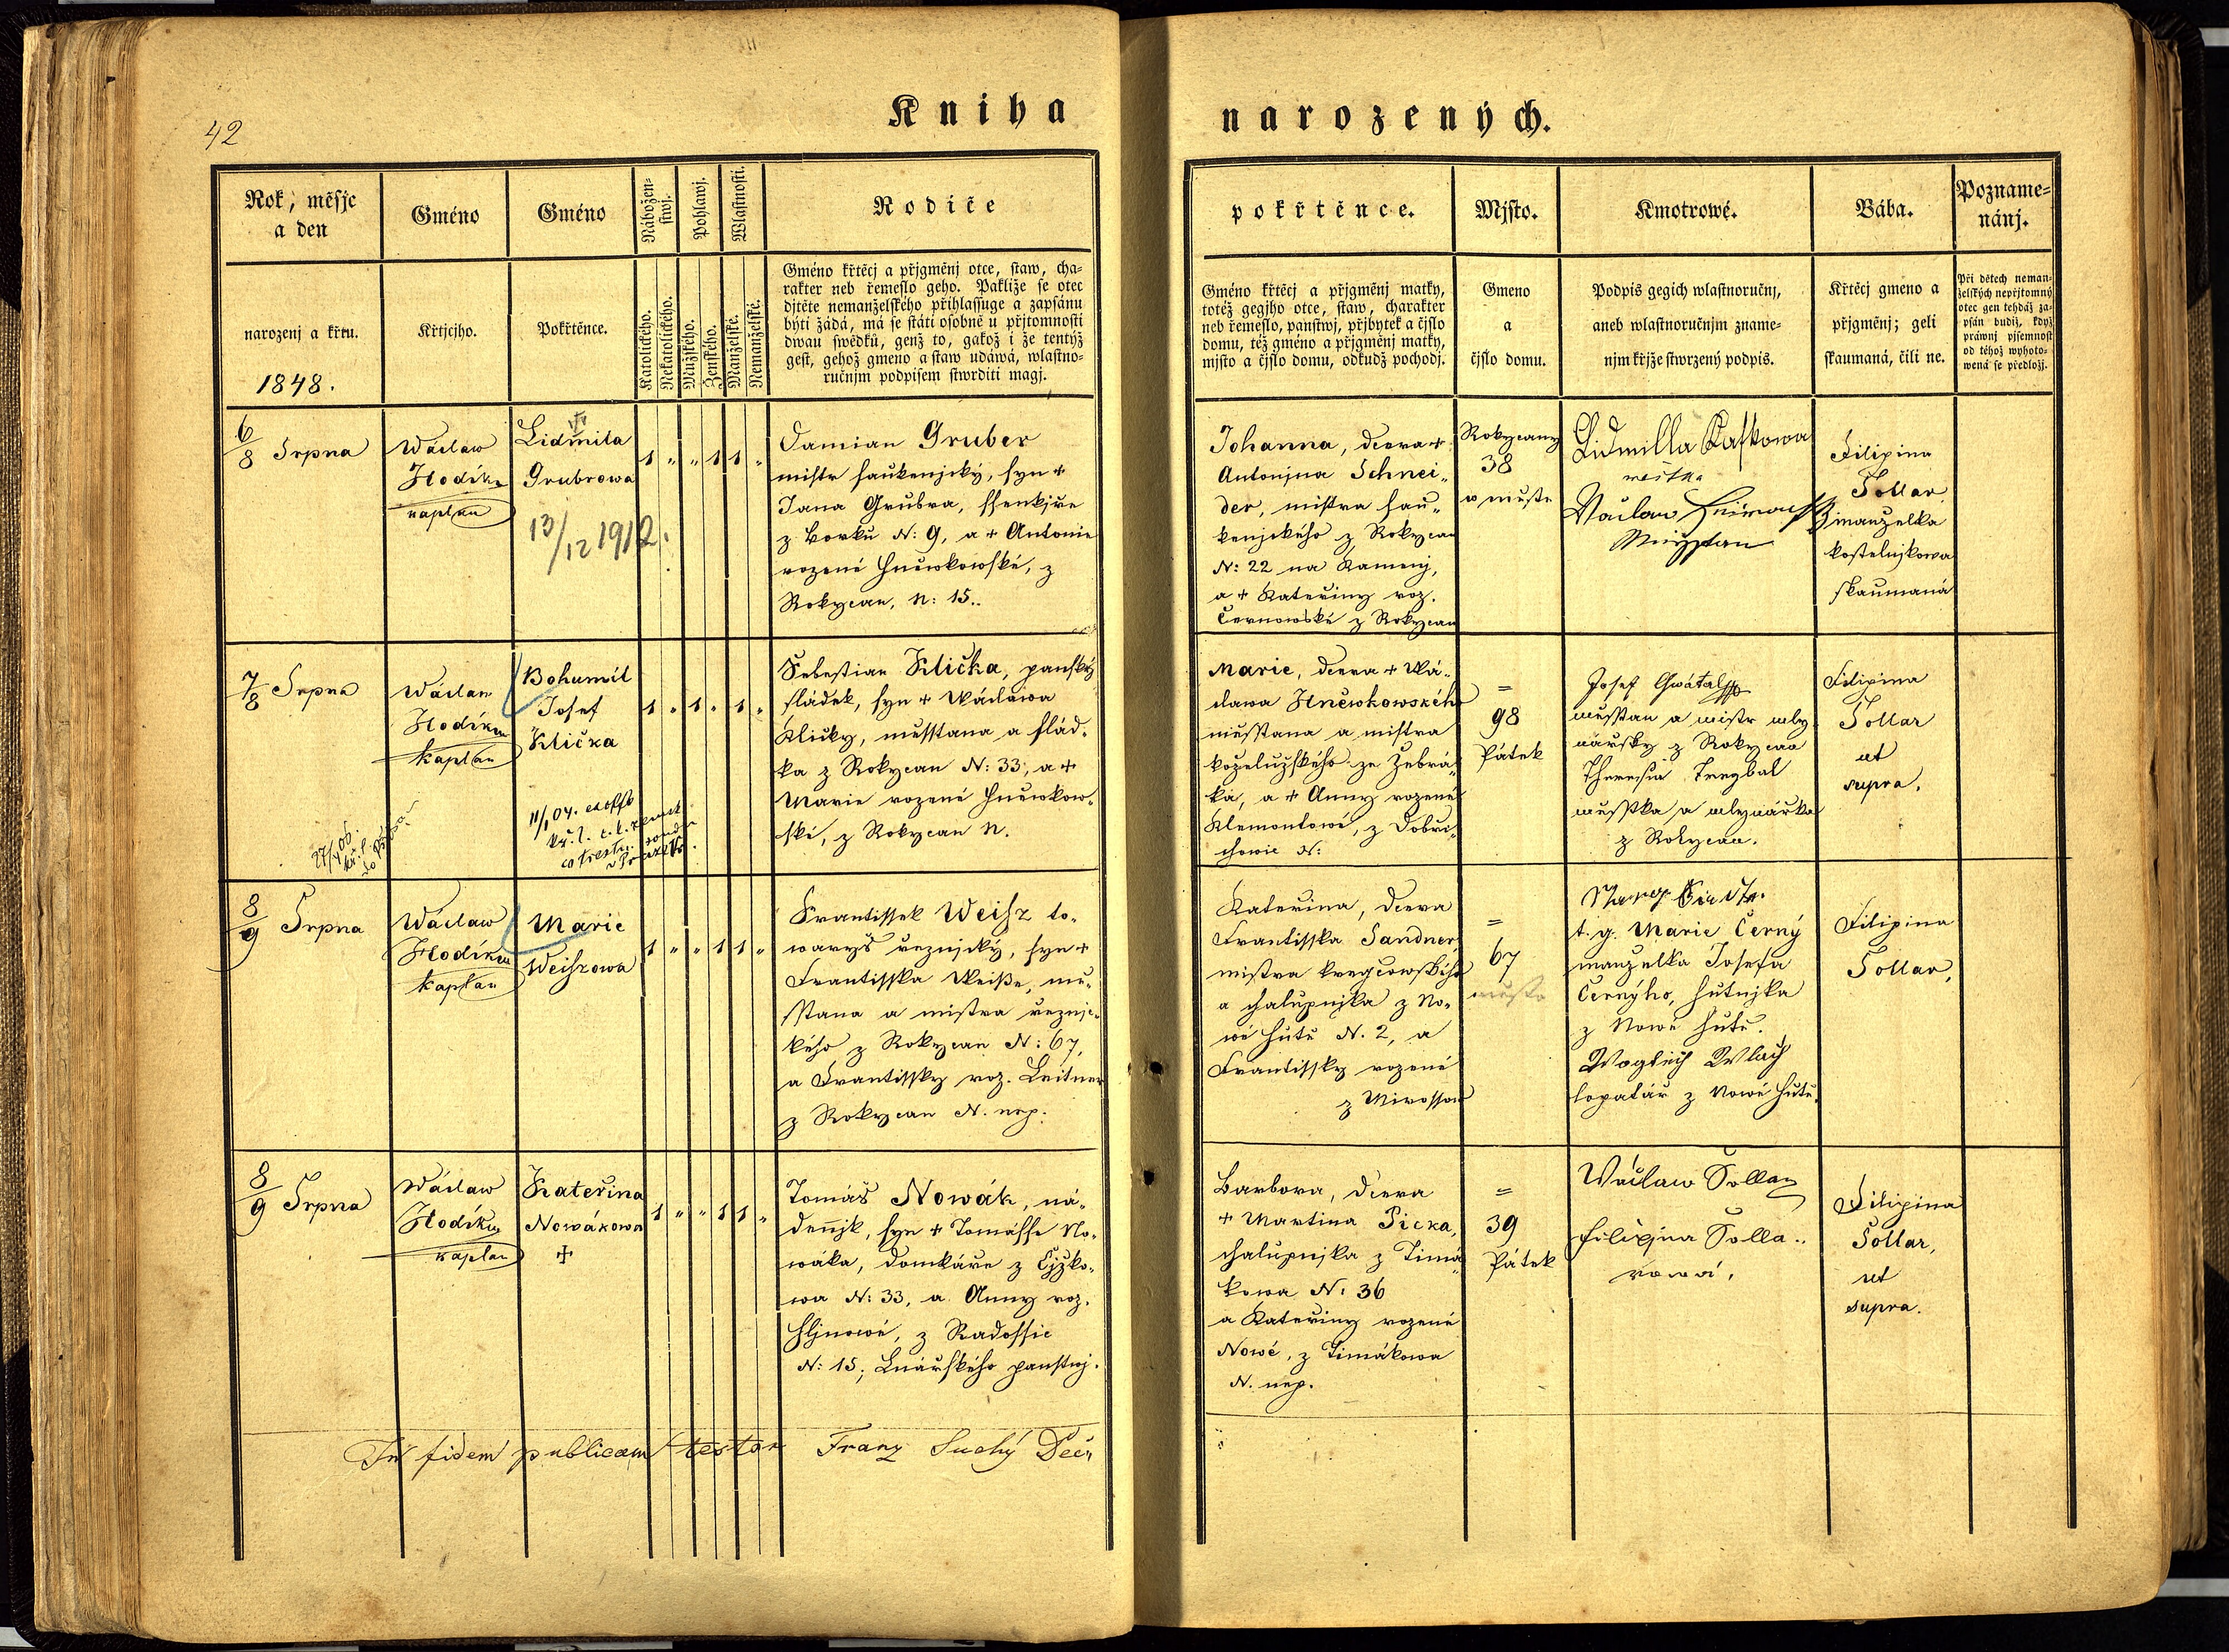 42
Kniha
narozených.
Rok, měsjc
a den
narozenj a křtu.
1848.
Gméno
Křtjcjho.
Gméno
Pokřtěnce.
Nábožen-
stwj.
Katolického.
Nekatolického.
Pohlawj.
Mužského.
Ženského.
Wlastnosti.
Manželské.
Nemanželské.
Rodiče
Gméno křtěcj a přjgměnj otce, staw, cha-
rakter neb řemeslo geho. Pakliže se otec
djtěte nemanželského přihlassuge a zapsánu
býti žádá, má se státi osobně u přjtomnosti
dwau swědků, genž to, gakož i že tentýž
gest, gehož gmeno a staw udáwá, wlastno-
ručnjm podpisem stwrditi magj.
pokřtěnce.
Gméno křtěcj a přjgměnj matky,
totéž gegjho otce, staw, charakter
neb řemeslo, panstwj, přjbytek a čjslo
domu, též gméno a přjgměnj matky,
mjsto a čjslo domu, odkudž pochodj.
Mjsto.
Gmeno
a
čjslo domu.
Kmotrowé.
Podpis gegich wlastnoručnj,
aneb wlastnoručnjm zname-
njm křjže stwrzený podpis.
Bába.
Křtěcj gmeno a
přjgměnj; geli
skaumaná, čili ne.
Pozname-
nánj.
Při dětech neman-
želských nepřjtomný
otec gen tehdáž za-
psán budiž, když
práwnj pjsemnost
od téhož wyhoto-
wená se předložj.
6/8 Srpna
Wáclaw
Hodík
kaplan
Lidmila
Grubrowa
13/12 1912.
1 " " 1 1 "
Damian Gruber
mistr saukenjcký, syn +
Jana Grubra, ssenkjře
z Borku N: 9, a + Antonie
rozené Hněwkowské, z
Rokycan, N: 15.
Johanna, dcera +
Antonjna Schnei-
der, mistra sau-
kenjckého z Rokycan
N: 22 na Kamenj,
a + Kateřiny roz.
Černowské z Rokycan
Rokycany
38
w městě
Lidmilla Kaskowa
měštka
Václaw
Filipina
Sollar
manželka
kostelnjkowa
skaumaná
7/8 Srpna
Wáclaw
Hodík
kaplan
27/4 06.
Bohumil
Josef
Klička
11/1 04. ex offo
1 " 1 " 1 "
Sebestian Klička, panský
sládek, syn + Wáclawa
Kličky, měsstana a slád-
ka z Rokycan N: 33, a +
Marie rozené Hněwkow-
ské, z Rokycan N.
Marie, dcera + Wá-
clawa Hněwkowského
měsstana a mistra
koželužského ze Žebrá-
ka, a + Anny rozené
Klemontowé, z Dobři-
chowic N:
=
98
Pátek
Josef Gwátal
měsstan a mistr mly-
nářsky z Rokycan
Theresia Treybal
měsstka a mlynářka
z Rokycan.
Filipina
Sollar
ut
supra.
8/9 Srpna
Wáclaw
Hodík
kaplan
Marie
Weiszowa
1 " " 1 1 "
Frantissek Weisz to-
waryš řeznjcký, syn +
Frantisska Weiße, mě-
sstana a mistra řeznjc-
kého z Rokycan N: 67,
a Frantissky roz. Leitner
z Rokycan N. nep.
Kateřina, dcera
Frantisska Sandner,
mistra kregčowského
a chalupnjka z No-
wé Hutě N. 2, a
Frantissky rozené
z Mirossow
=
67
město
t. g. Marie Černý
manželka Josefa
Černýho, hutnjka
z Nowé Hutě.
Wogtěch Wlach
lopatář z Nowé Hutě.
Filipina
Sollar,
8/9 Srpna
Wáclaw
Hodík
kaplan
Kateřina
Nowákowa
+
1 " " 1 1 "
Tomáš Nowák, ná-
dennjk, syn + Tomásse No-
wáka, domkáře z Čjžko-
wa N: 33, a Anny roz.
Hljnowé, z Radossic
N: 15; Lnářského panstwj.
Barbora, dcera
+ Martina Sicka,
chalupnjka z Timá-
kowa N: 36
a Kateřiny rozené
Nowé, z Timákowa
N. nep.
=
39
Pátek
Wáclaw Sollar
Filipjna Solla-
rowá.
Filipina
Sollar,
ut
supra.
In fidem publicam testor Franz Suchý Děč.